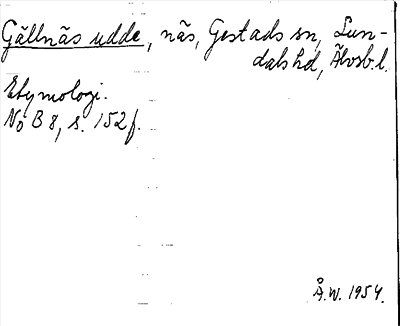 Gällnäs udde, näs, Gestads sn, Sun-
dals hd, Älvsb. l.
Etymologi.
NoB 8, s. 152 f.
Å.W. 1954.